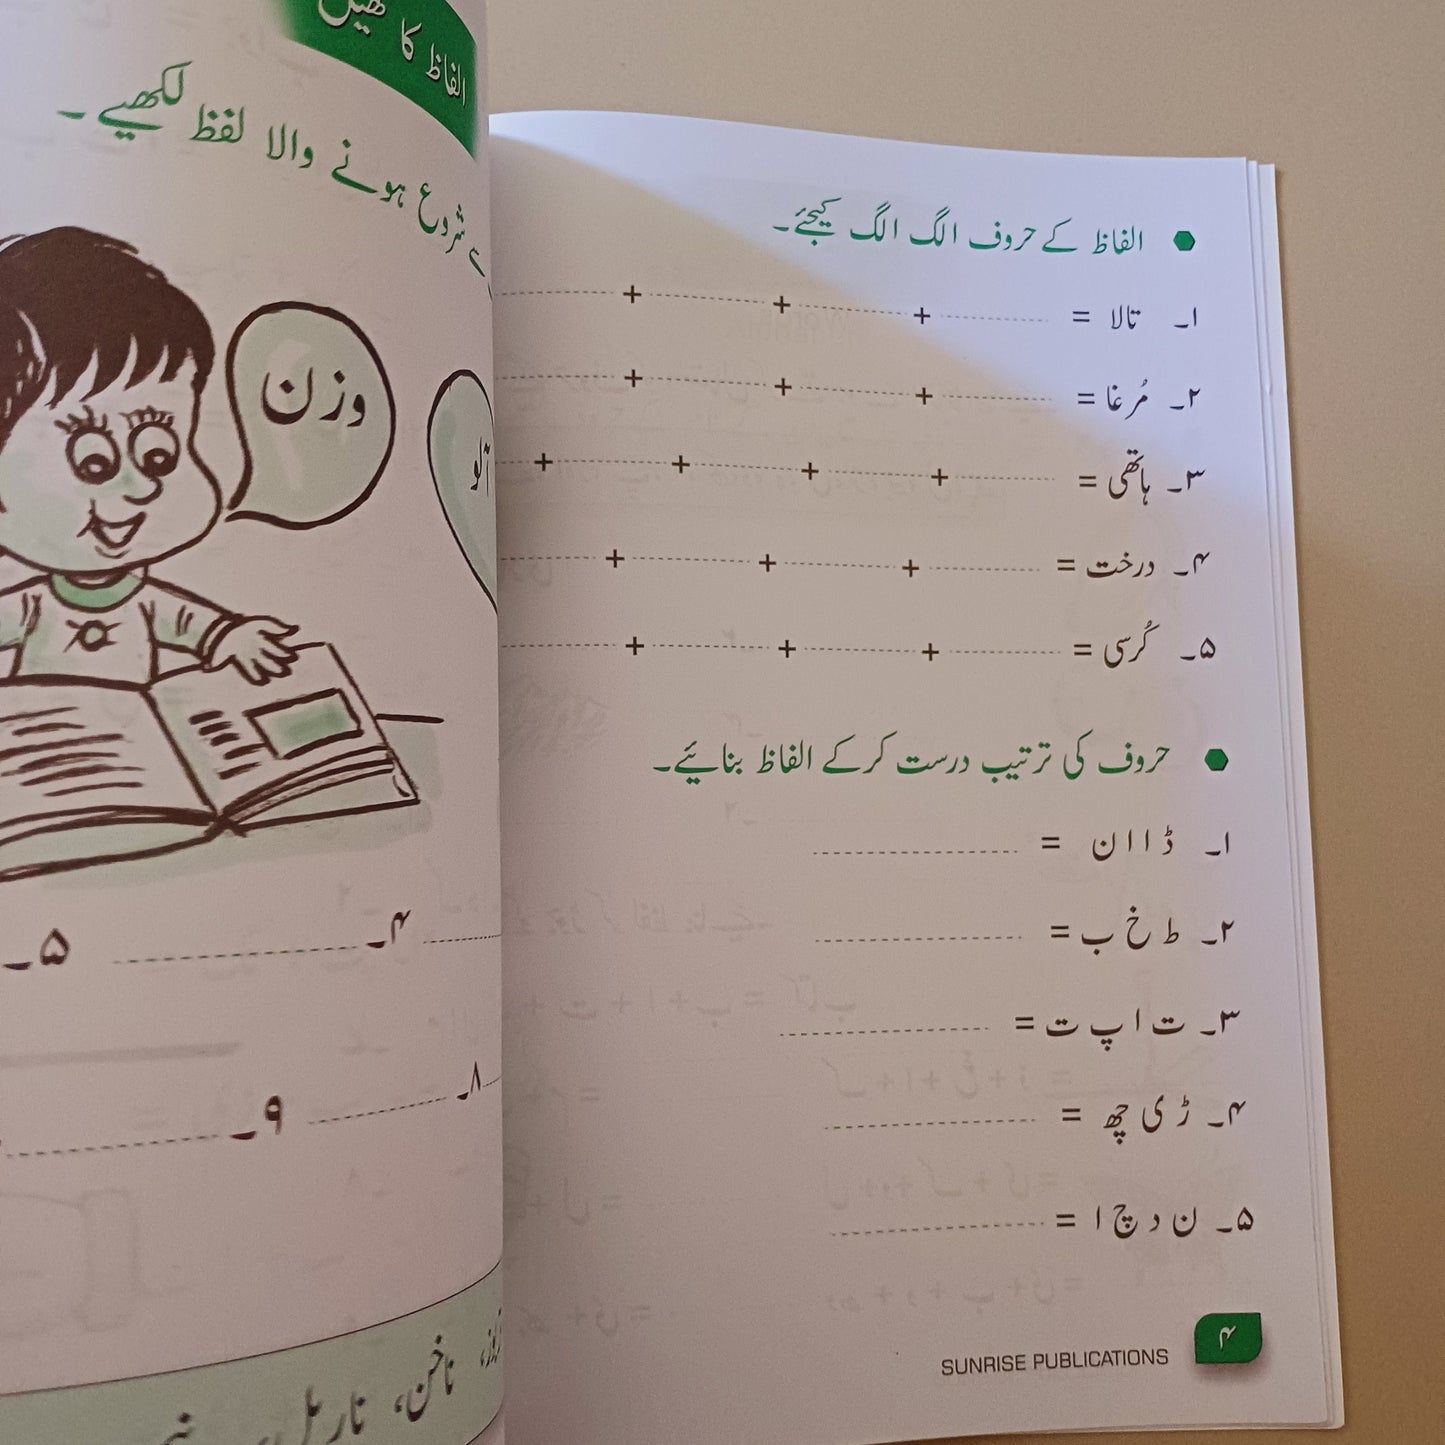 الفاظ کا کھیل
سے شروع ہونے والا لفظ لکھیے۔
وزن
آلو
۴۔
۵۔
۸۔
۹۔
ناخن، ناریل،
● الفاظ کے حروف الگ الگ کیجئے۔
۱۔ تالا = + + +
۲۔ مُرغا = + + +
۳۔ ہاتھی = + + + +
۴۔ درخت = + + +
۵۔ کُرسی = + + +
● حروف کی ترتیب درست کرکے الفاظ بنائیے۔
۱۔ ڈ ا ا ن =
۲۔ ط خ ب =
۳۔ ت ا پ ت =
۴۔ ڑ ی چھ =
۵۔ ن د چ ا =
SUNRISE PUBLICATIONS ۴